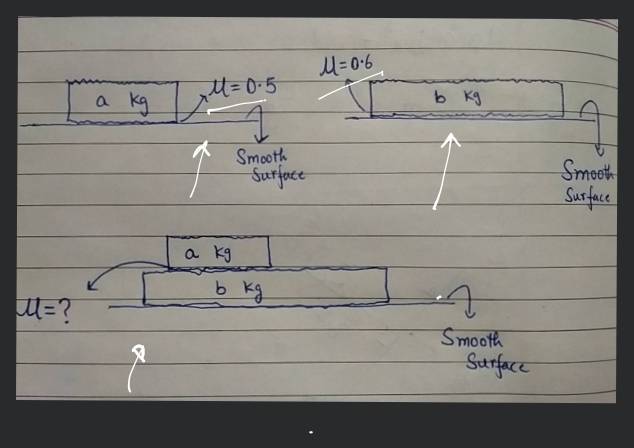 μ=0.6
a kg
μ=0.5
b kg
Smooth
Surface
Smooth
Surface
a kg
b kg
μ=?
Smooth
Surface